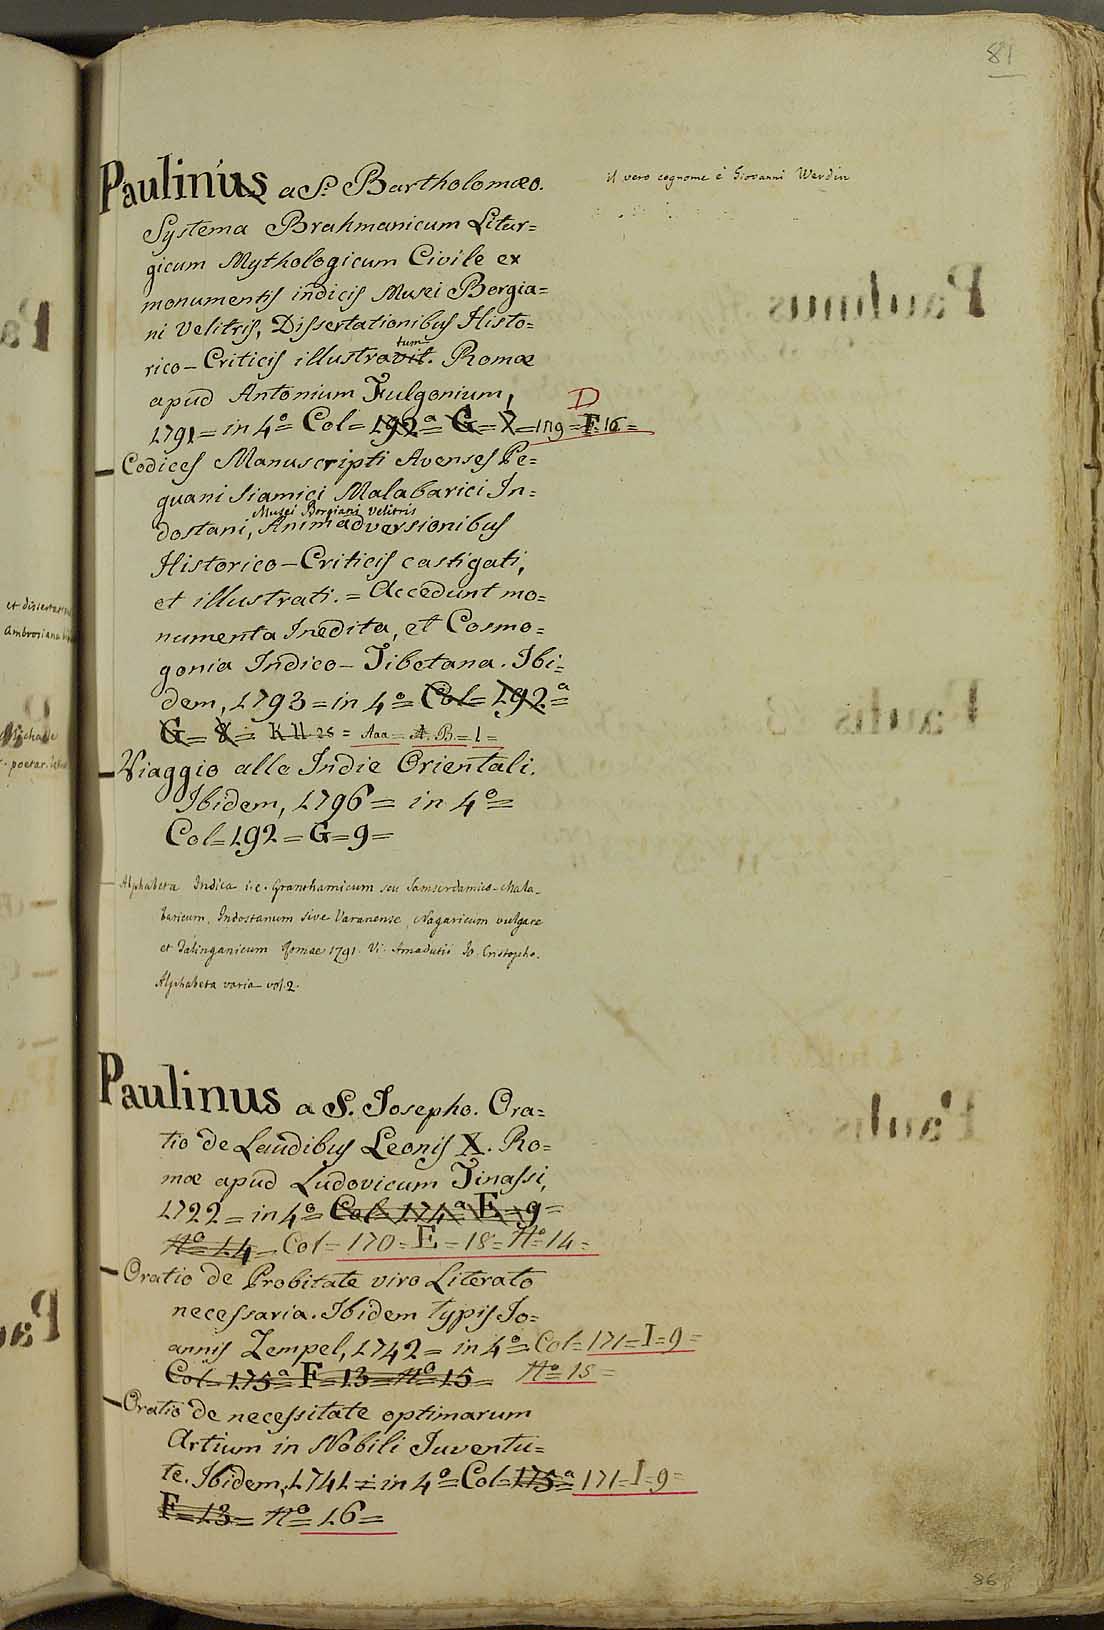 81
Paulinus a S. Bartholomæo.
il vero cognome è Giovanni Werdin
Systema Brahmanicum Litur=
gicum Mythologicum Civile ex
monumentis indicis Musei Borgia=
ni Velitris, Dissertationibus Histo=
rico-Criticis illustravit. tum Romæ
apud Antonium Fulgonium,
1791 = in 4º = Col = 192ª = G = 7 = 179 = F. 16 =
D
Codices Manuscripti Avenses Pe=
guani Siamici Malabarici In=
Musei Borgiani Velitris
dostani, Animadversionibus
Historico-Criticis castigati,
et illustrati. = Accedunt mo=
numenta Inedita, et Cosmo=
gonia Indico-Tibetana. Ibi=
dem, 1793 = in 4º = Col = 192ª =
G = 8 = 25 = Aaa = A. B = 1 =
Viaggio alle Indie Orientali.
Ibidem, 1796 = in 4º =
Col = 192 = G = 9 =
Alphabeta Indica i.e. Granthamicum seu Samscrdamico-Mala-
baricum, Indostanum sive Varanense, Nagaricum vulgare
et Talinganicum Romae 1791. Vi. Amadutii Jo. Cristopho.
Alphabeta varia vol. 2.
Paulinus a S. Josepho. Ora=
tio de Laudibus Leonis X. Ro=
mæ apud Ludovicum Tinassi,
1722 = in 4º = Col = 174ª E = 9 =
Nº = 14 = Col = 170 = E = 18 = Nº = 14 =
Oratio de Probitate viro Literato
necessaria. Ibidem typis Jo=
annis Zempel, 1742 = in 4º = Col = 171 = I = 9 =
Col = 175ª = F = 13 = Nº 15 = Nº = 15 =
Oratio de necessitate optimarum
Artium in Nobili Juventu=
te. Ibidem, 1741 = in 4º = Col = 175ª = 171 = I = 9 =
F = 13 = Nº = 16 =
86